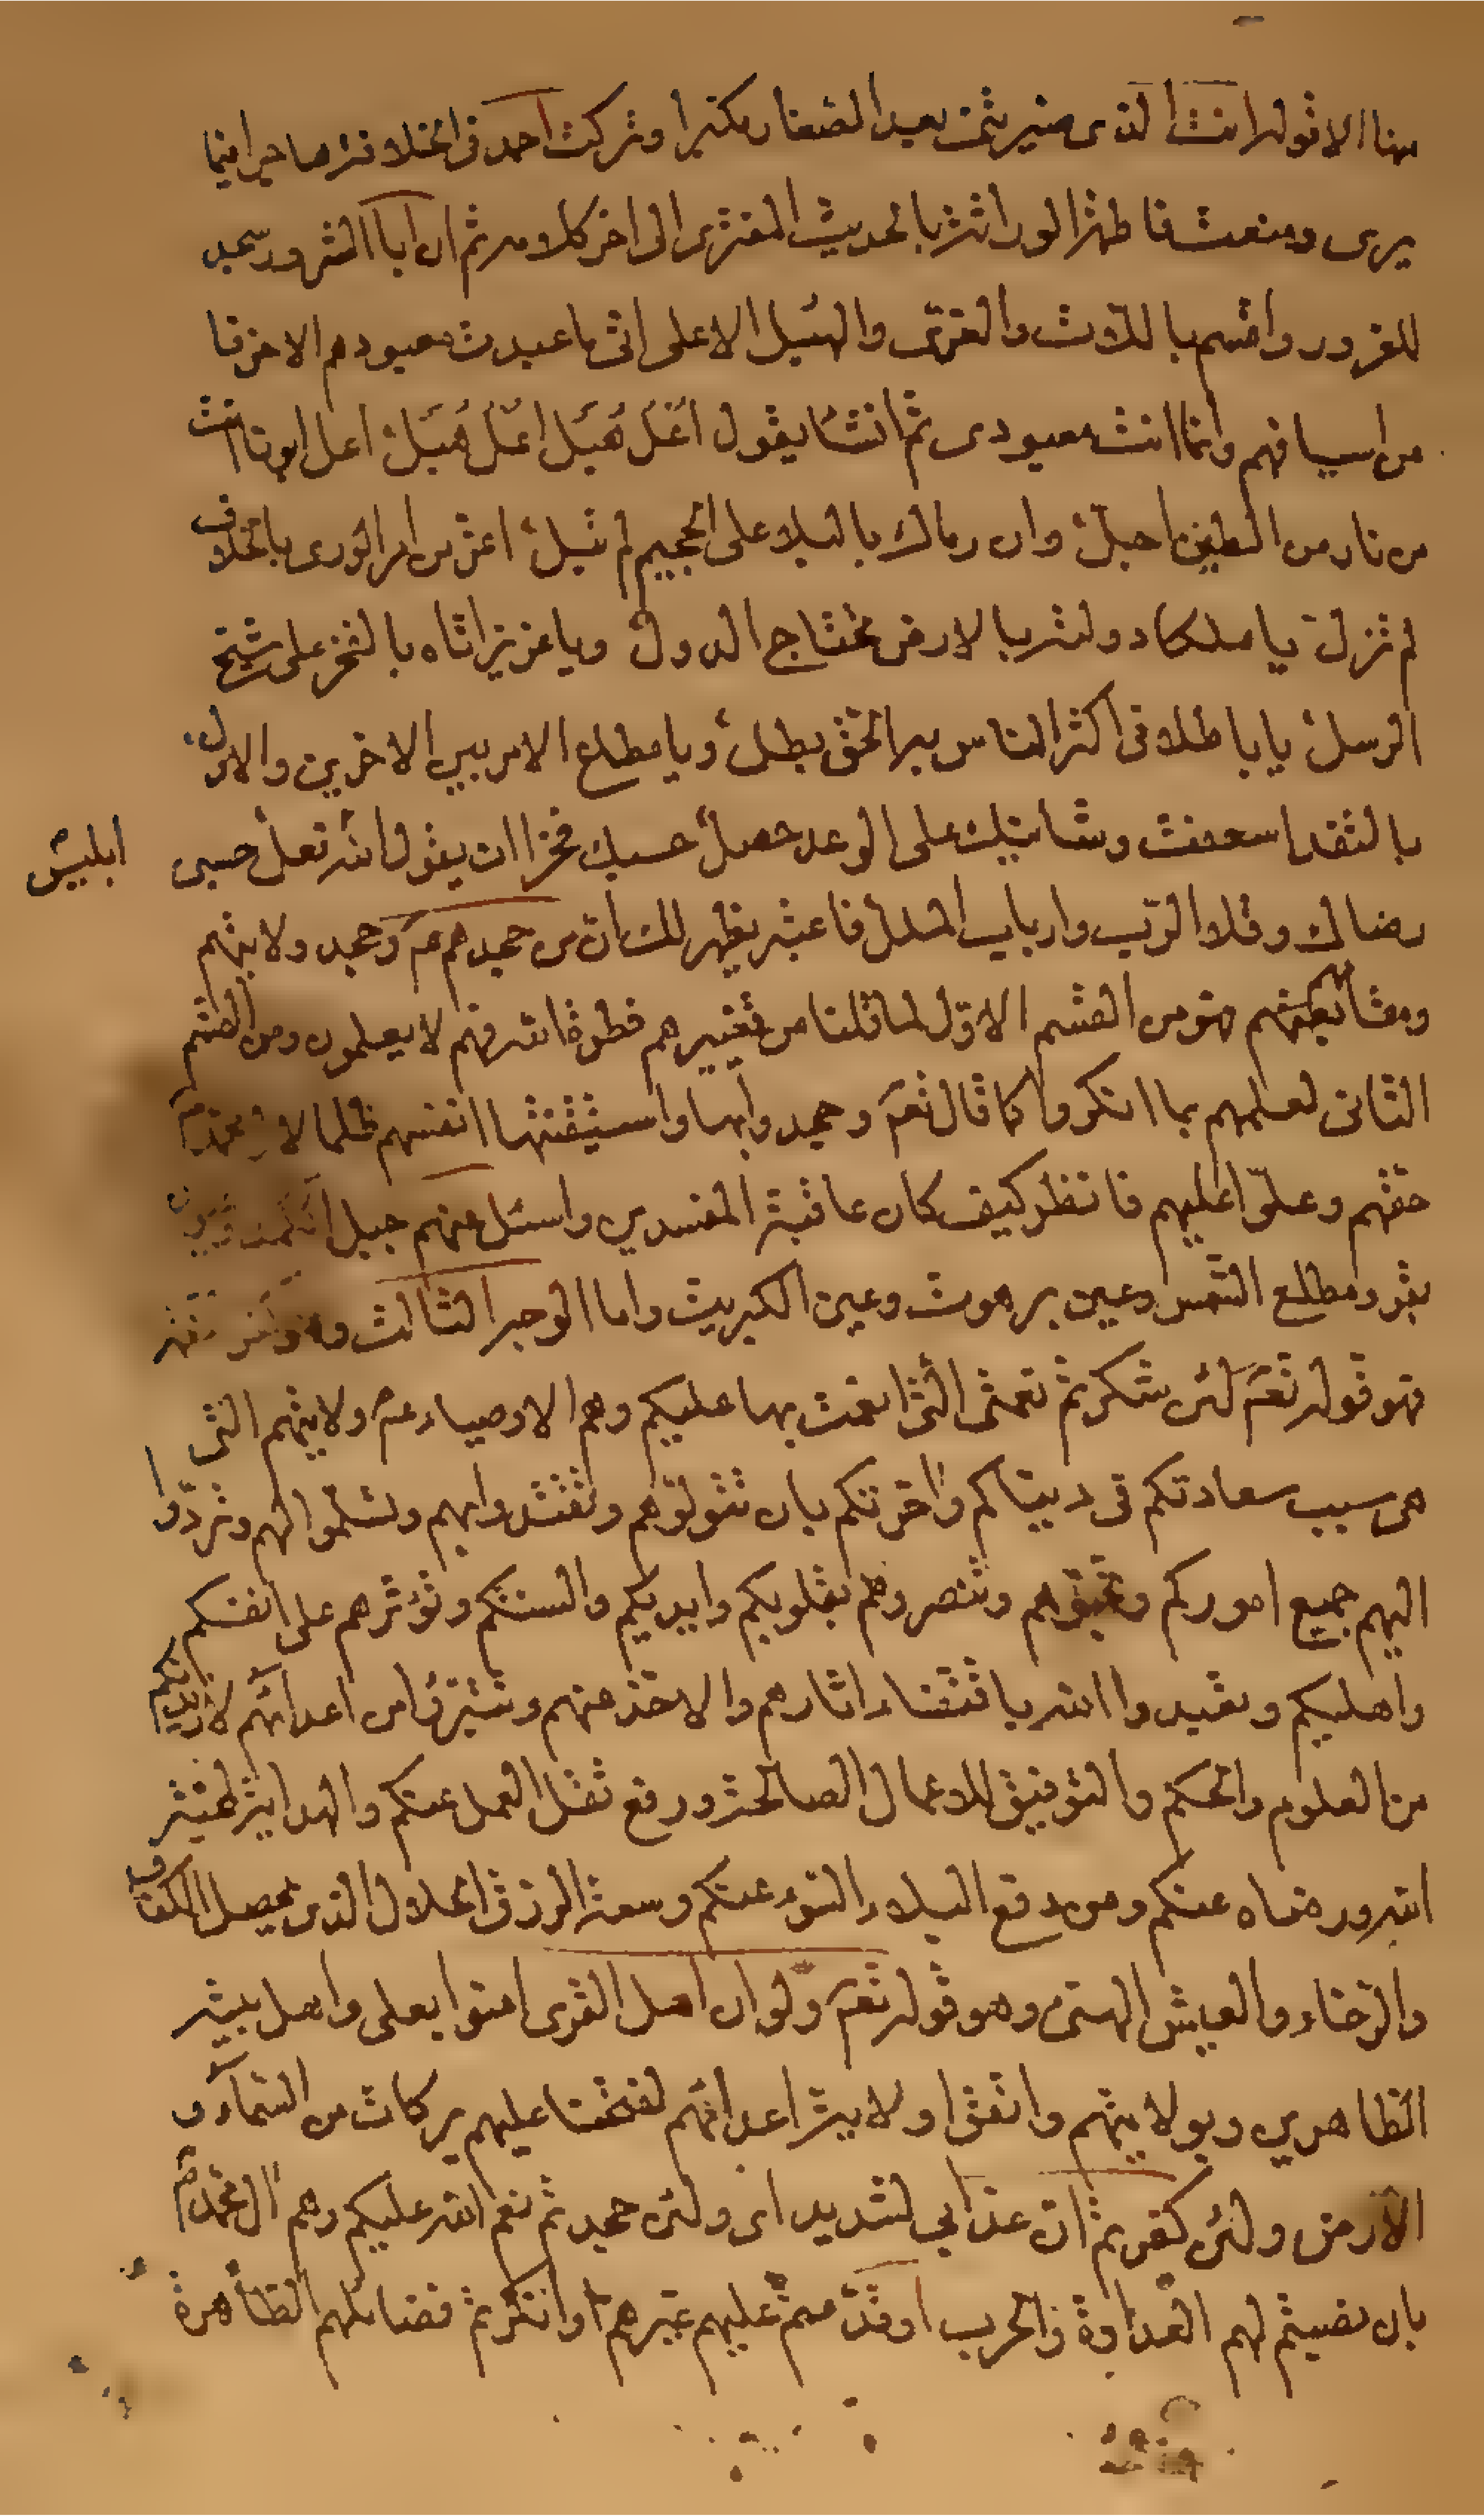 هنا الا قوله انت الذى صيرت بعد الصغار مكبرا وتركت احمد فى الخلافة صاحبرا فيما
يرى ومنعت فاطمة الوراثة بالحديث المفترى الى اخر كلامه ثم ان ابا الشرور سجد
للغرور واقسم باللات والعزى والهبل الاعلى انى ما عبدت معبودهم الا خوفا
من اسيافهم وانما انت معبودى ثم انشا يقول اعل هبل اعل هبل اعل ابونا انت
من نار من الطين اجل وان رماك بالبلا على الجحيم لم تبل اعز من امر الورى بالخلاف
لم تزل يا ملكا دولته بالارض تحتاج الدول ويا عزيزا تاه بالفخر على شيخ
الرسل يا باطلا فى اكثر الناس به الحق بطل ويا مطاع الامر بين الاخرين والاول
بالنقد اسعفت وشانيك على الوعد حصل حسبك فخرا ان يقول الله تعل حسبى ابليس
رضاك وقلا الرتب وارباب الملل فاعتبر يظهر لك ان من جحدهم عم وجحد ولايتهم
ومقاماتهم فهو من القسم الاول لما قلنا من تغيير هم فطرة الله فهم لا يعلمون ومن القسم
الثانى لعلمهم بما انكروا كما قال تعم وجحدوا بها واستيقنتها انفسهم ظلما لال محمد
حقهم وعلوا عليهم فانظر كيف كان عاقبة المفسدين واسئل عنهم جبل
بقر ومطلع الشمس وعين برهوت وعين الكبريت واما الوجه الثالث
فهو قوله تعم لئن شكرتم نعمتى التى انعمت بها عليكم وهم الاوصياء عم ولايتهم التى
هى سبب سعادتكم فى دنياكم واخرتكم بان تتولوهم وتقتدوا بهم وتسلموا لهم وتردوا
اليهم جميع اموركم وتحبوهم وتنصروهم بقلوبكم وايديكم والسنتكم وتؤثرهم على انفسكم
واهليكم وتعبدوا الله باقتفاء اثارهم والاخذ عنهم وتتبرؤا من اعدائهم لازيدنكم
من العلوم والحكم والتوفيق للاعمال الصالحة ورفع ثقل العمل عنكم والهداية لمحبة
الله ورضاه عنكم ومن دفع البلاء والسوء عنكم وسعة الرزق الحلال الذى يحصل الكفاف
والرخاء والعيش الهنى وهو قوله تعم ولو ان اهل القرى امنوا بعلى واهل بيته
الطاهرين وبولايتهم واتقوا ولاية اعدائهم لفتحنا عليهم بركات من السماء و
الارض ولئن كفرتم ان عذابى لشديد اى ولئن جحدتم نعم الله عليكم وهم ال محمد
بان نصبتم لهم العداوة والحرب او قدمتم عليهم غيرهم او انكرتم فضائلهم الظاهرة